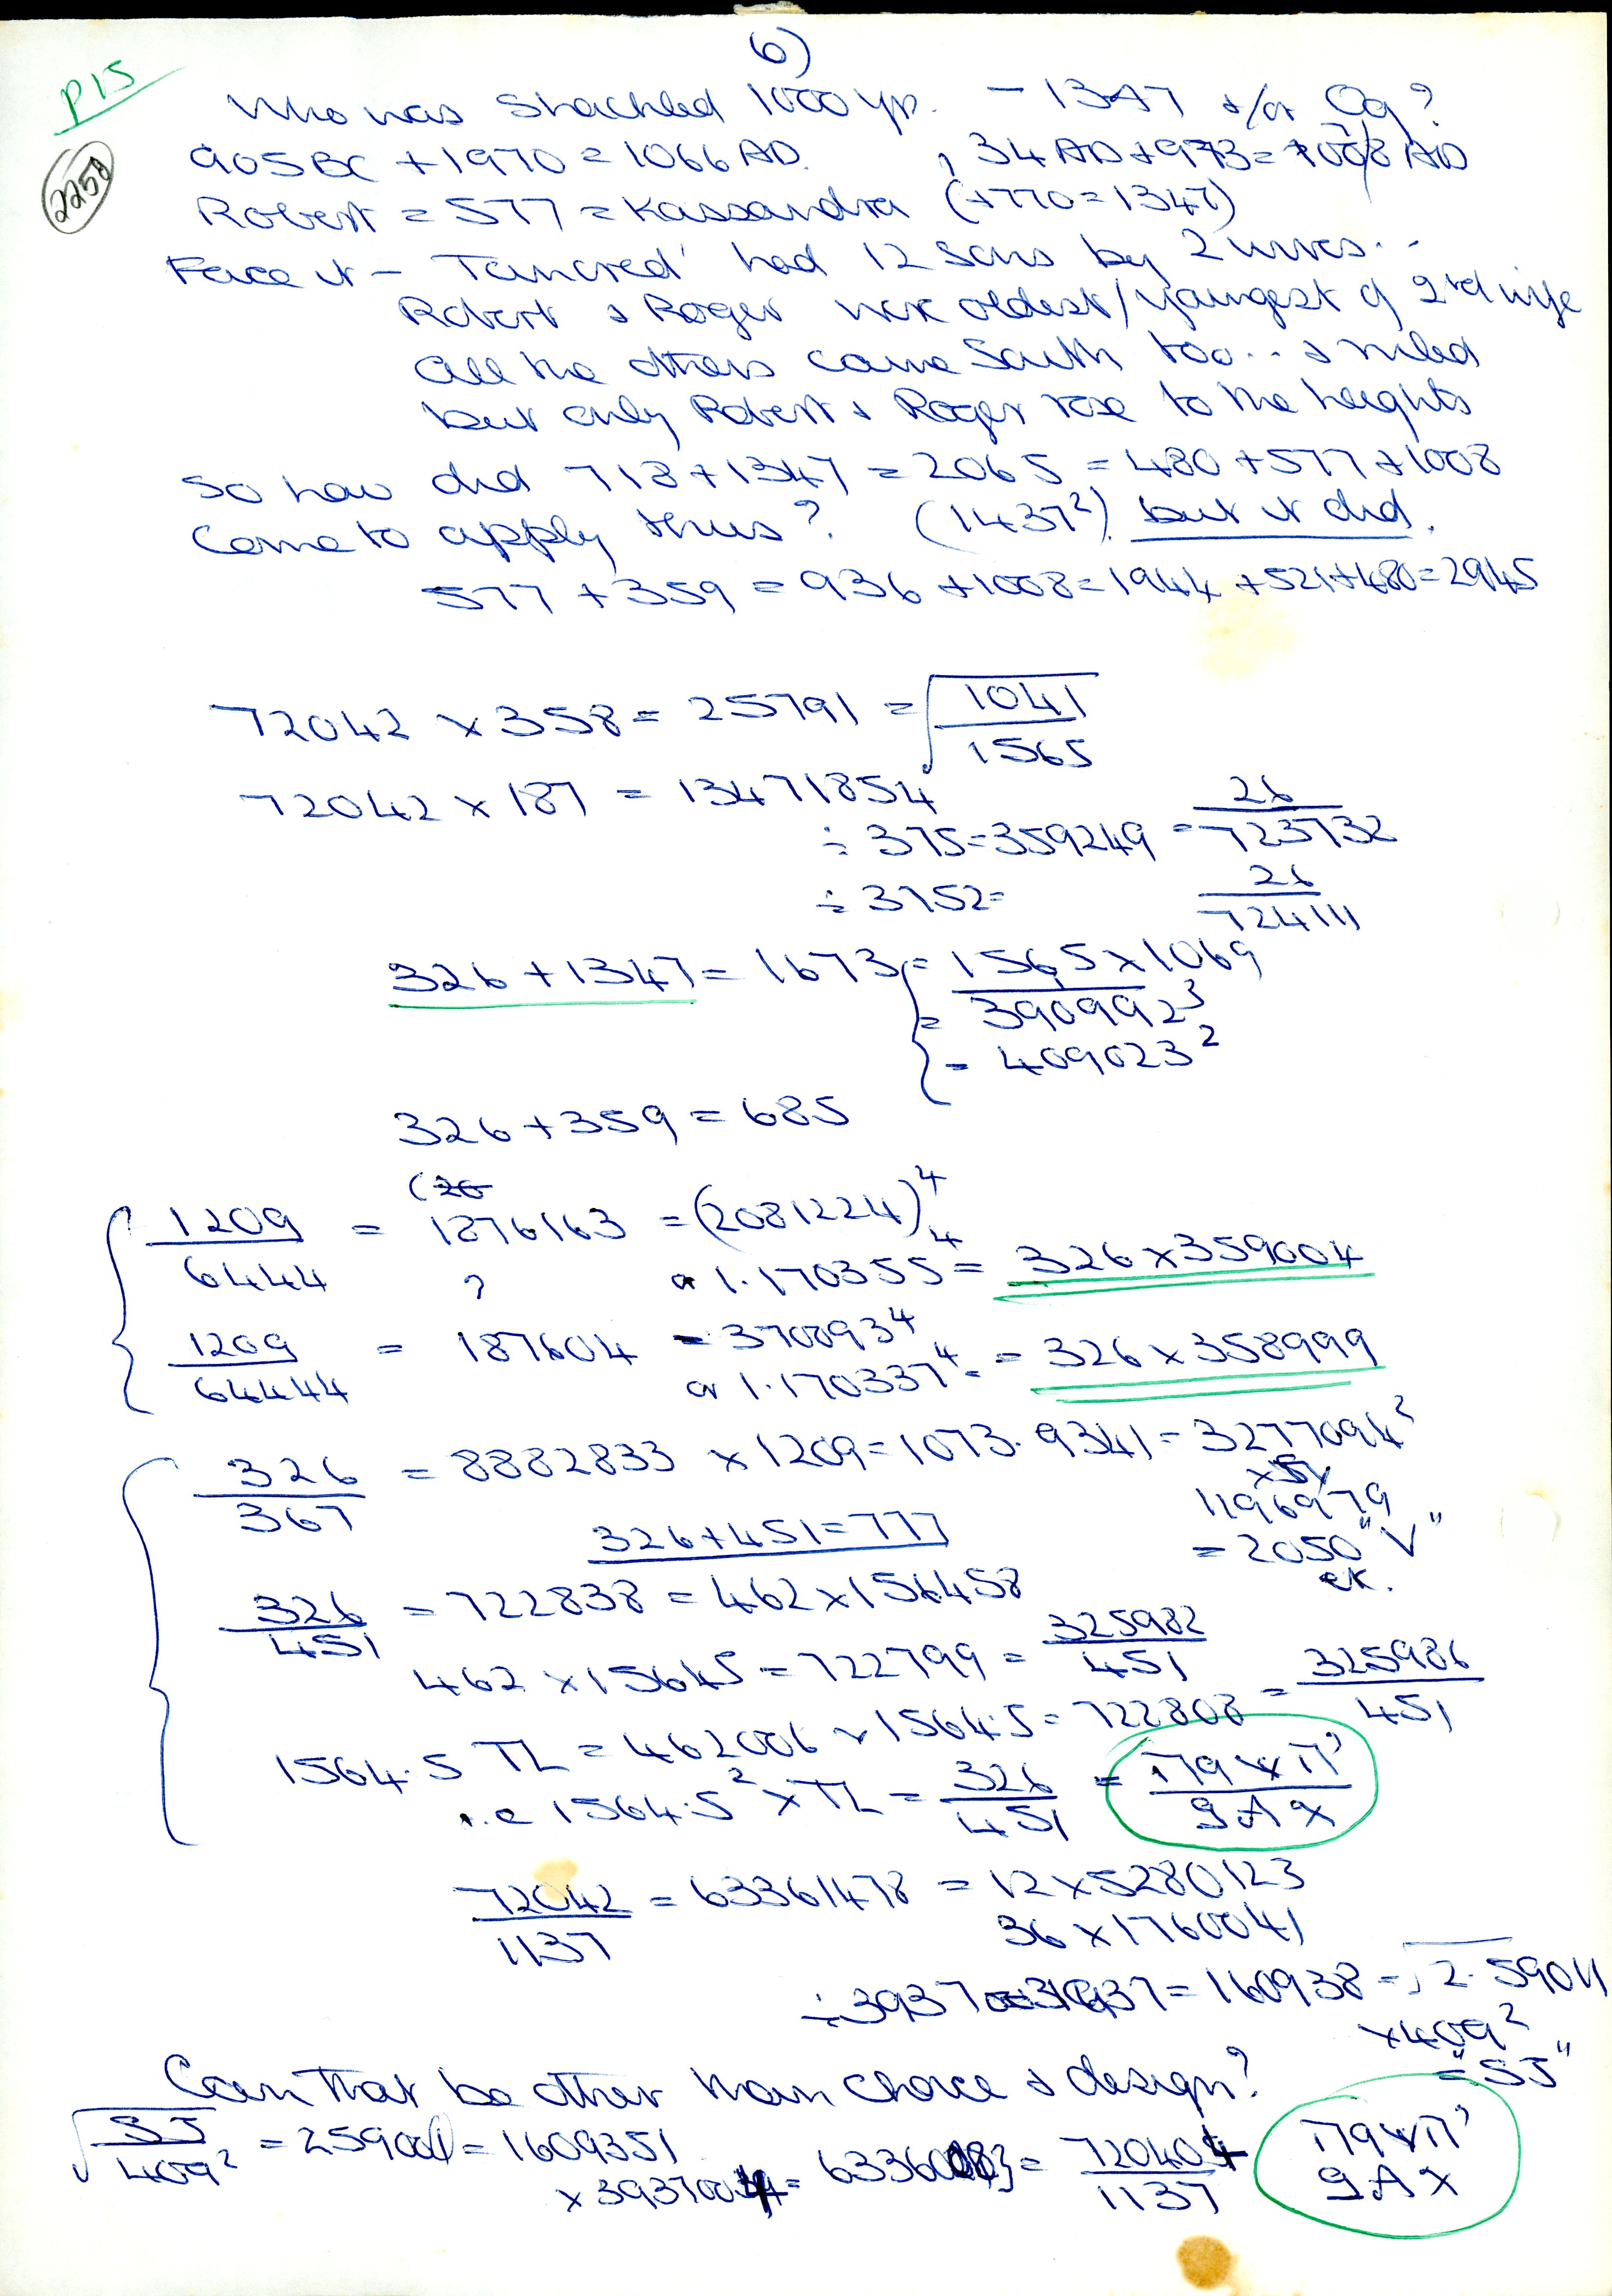 6)
P15
2258
Who was Shackled 1000 yr. - 1347 &/or Og?
905BC + 1970 = 1066 AD. , 34 AD + 973 = 1008 AD
Robert = 577 = Kassandra (+770 = 1347)
Face it - 'Tancred' had 12 sons by 2 wives..
Robert & Roger were oldest/youngest of 2nd wife
all the others came South too.. & ruled
but only Robert & Roger rose to the heights
So how did 718 + 1347 = 2065 = 480 + 577 + 1008
come to apply thus? (1437²) but it did.
577 + 359 = 936 + 1008 = 1944 + 521 + 480 = 2945
72042 x 358 = 25791 = √1041/1565
72042 x 187 = 13471854
÷ 375 = 359249 = 26/723732
÷ 3752 = 26/724111
326 + 1347 = 1673 = 1565 x 1069
= 3909992³
= 409023²
326 + 359 = 685
1209/6444 = 1876163 = (2081224)⁴
? or 1.170355⁴ = 326 x 359004
1209/64444 = 187604 = 370093⁴
or 1.170337⁴ = 326 x 358999
326/367 = 8882833 x 1209 = 1073.9341 = 3277094²
1196979
= 2050 "V"
ex.
326 + 451 = 777
326/451 = 722838 = 462 x 156458
462 x 15645 = 722799 = 325982/451
1564.5 TL = 462006 x 1564.5 = 722808 = 325986/451
i.e 1564.5² x TL = 326/451 =
72042/1137 = 63361478 = 12 x 5280123
36 x 1760041
÷ 3937 = 160938 = √2.59011
x 409²
= "SJ"
Can that be other than choice & design?
√SJ/409² = 259001 = 1609351